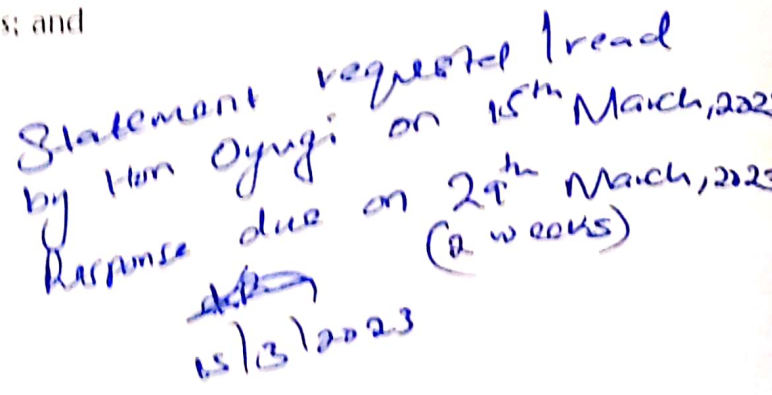 s; and
Statement requested / read
by Hon Oyugi on 15th March, 202
Response due on 29th March, 2023
(2 weeks)
15/3/2023